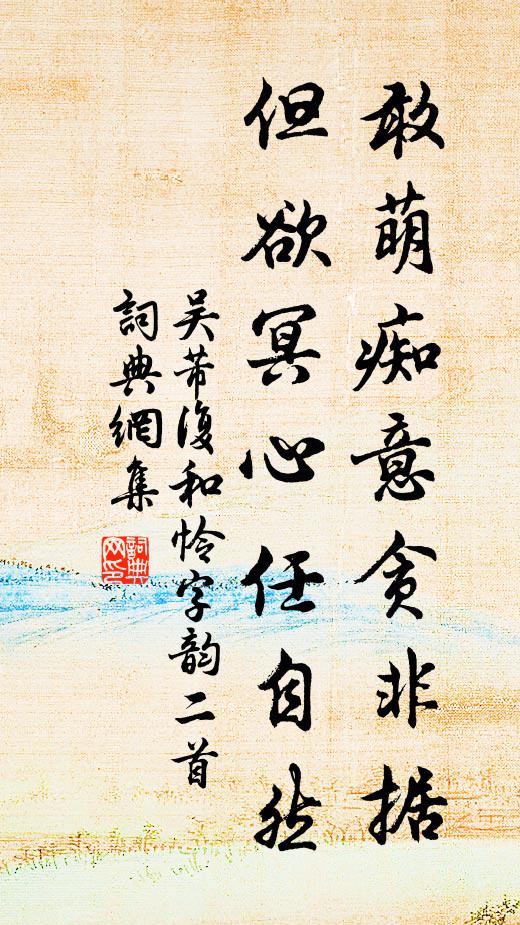 敢萌痴意贪非据
但欲冥心任自然
吴芾復和怜字韵二首
詞典網集
詞典网印